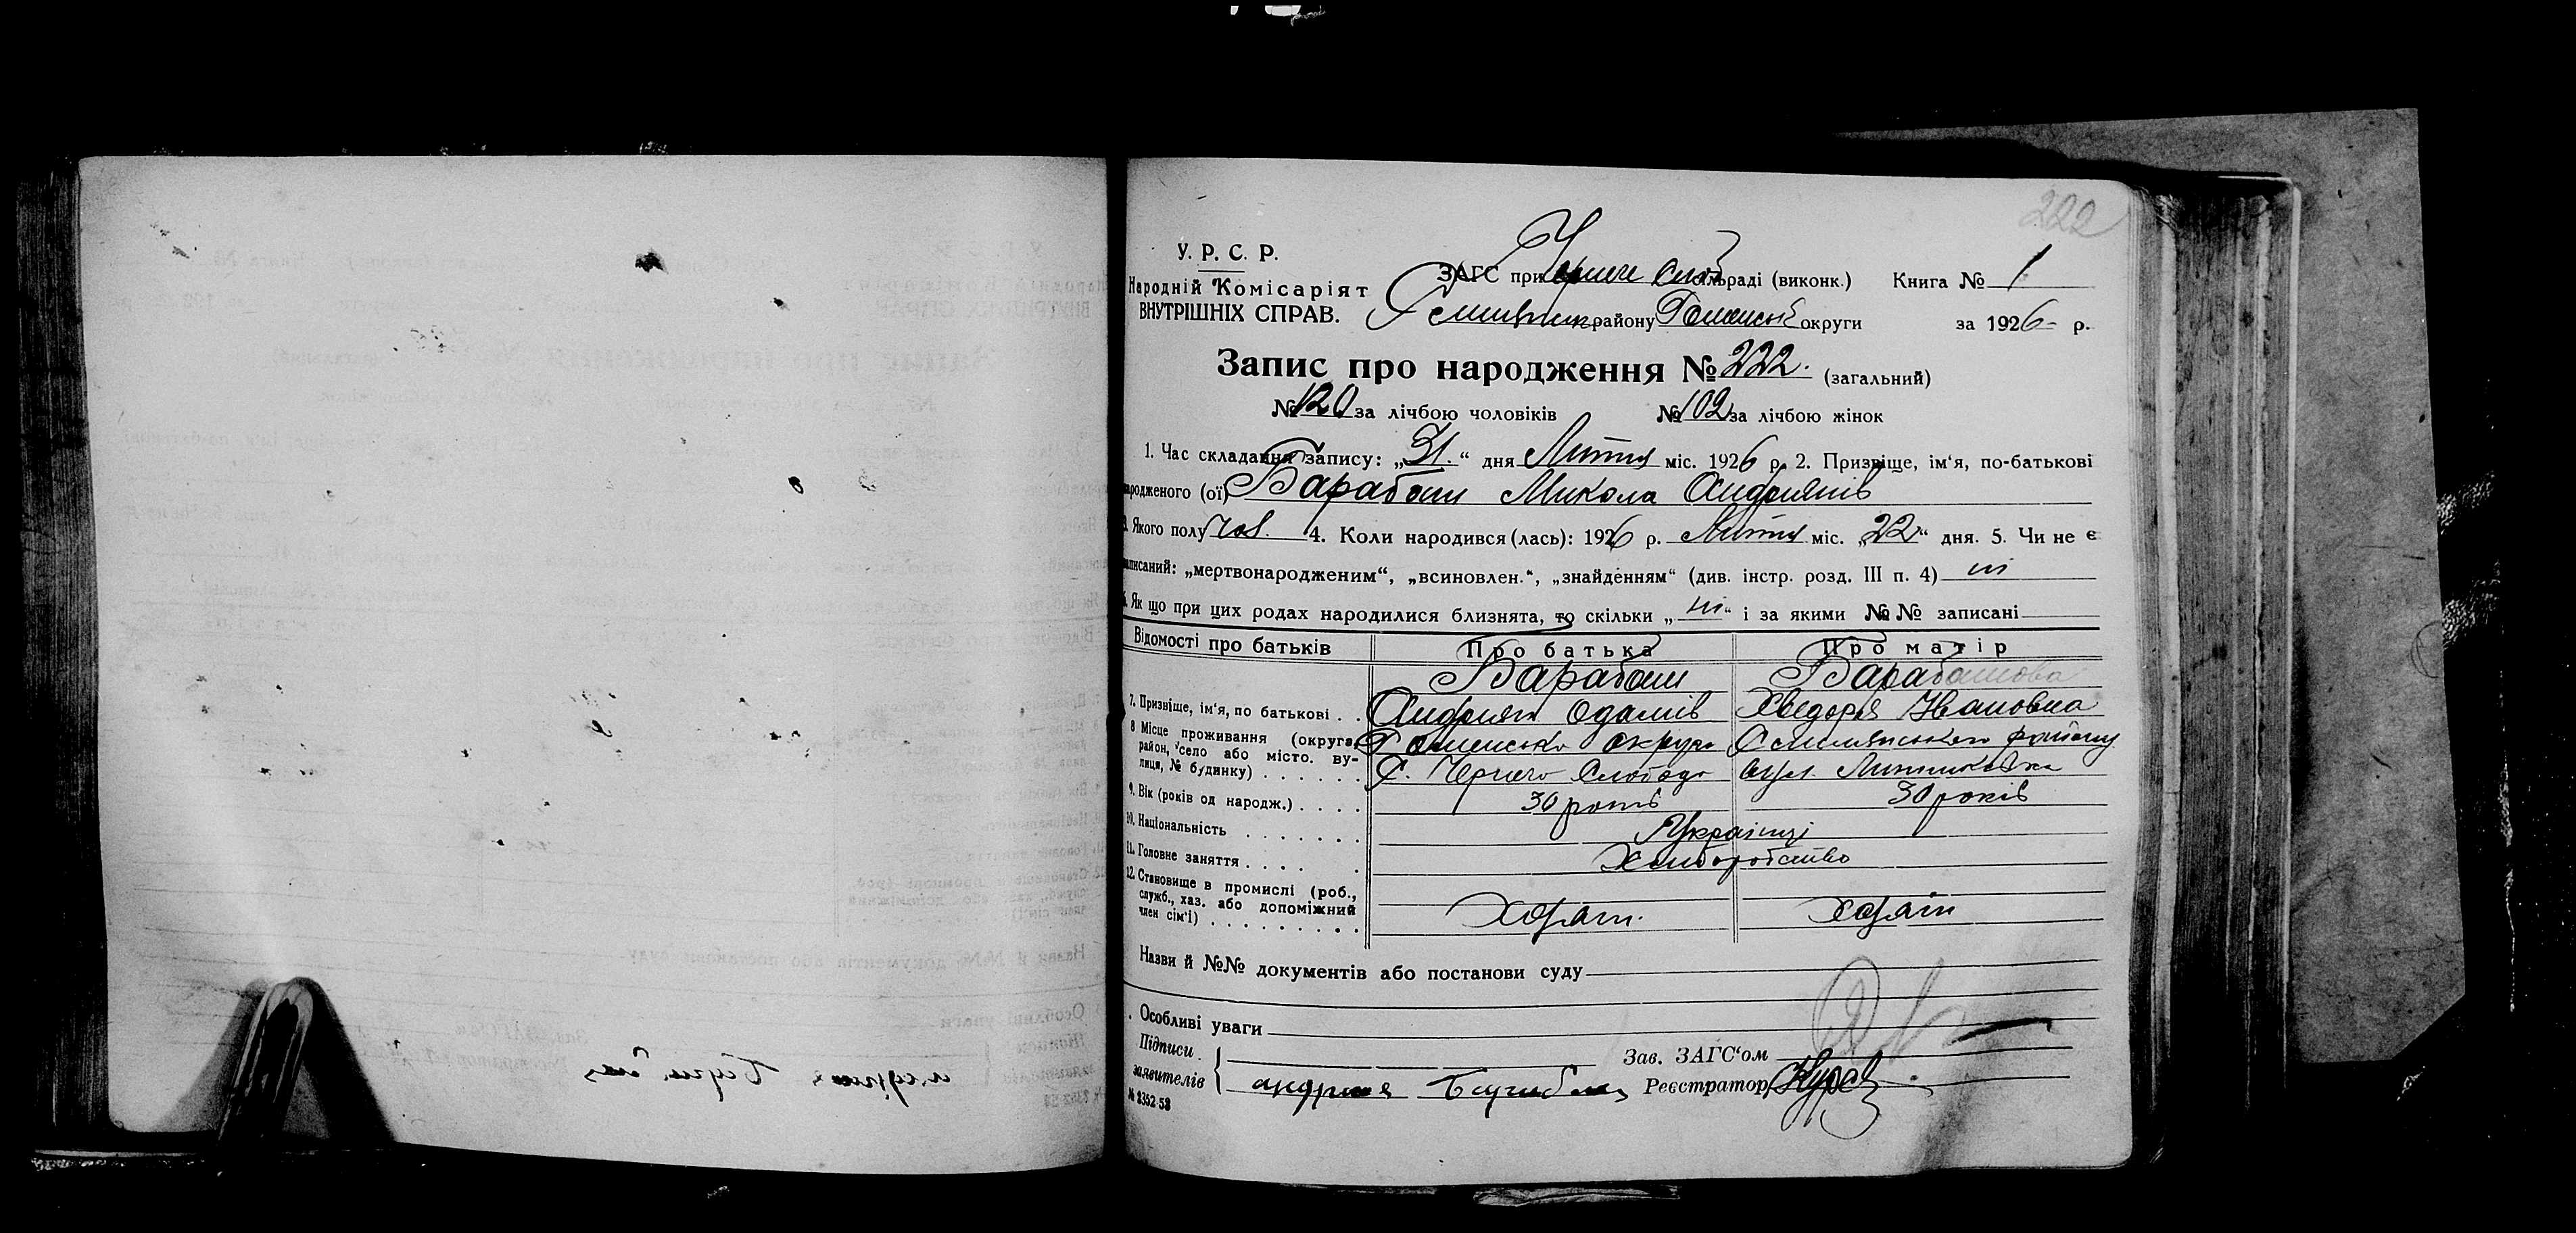 222
У. Р. С. Р.
Народній Комісаріят
ВНУТРІШНІХ СПРАВ.
ЗАГС при Черчече Слоб сільраді (виконк.) Книга № 1
району Роменської округи за 1926 р.
Запис про народження № 222. (загальний)
№ 120 за лічбою чоловіків № 102 за лічбою жінок
1. Час складання запису: „31.“ дня Липня міс. 1926 р. 2. Призвіще, ім‘я, по-батькові
народженого (ої) Барабаш Микола Андріянів
3. Якого полу чол. 4. Коли народився (лась): 1926 р. Липня міс. „22“ дня. 5. Чи не є
записаний: „мертвонародженим“, „всиновлен.“, „знайденням“ (див. інстр. розд. III п. 4) ні
6. Як що при цих родах народилися близнята, то скільки „ні“ і за якими №№ записані
Відомості про батьків Про батька Про матір
Барабаш Барабашова
7. Призвіще, ім‘я, по батькові . . Андріян Одамів Хведора Ивановна
8 Місце проживання (округа, район, село або місто. ву- Роменська округа району
лиця, № будинку) . . . . . . С. Слобода вул.
9. Вік (років од народж.) . . . . 30 років 30 років
10. Національність . . . . . . . Українці
11. Головне заняття . . . . . Хліборобство
12. Становище в промислі (роб.,
служб., хаз. або допоміжний
член сім‘ї) . . . . . . . . . Хозяїн. Хозяїн
Назви й №№ документів або постанови суду
Особливі уваги
Підписи
заявителів
Зав. ЗАГС‘ом
Реєстратор
№ 2352-53